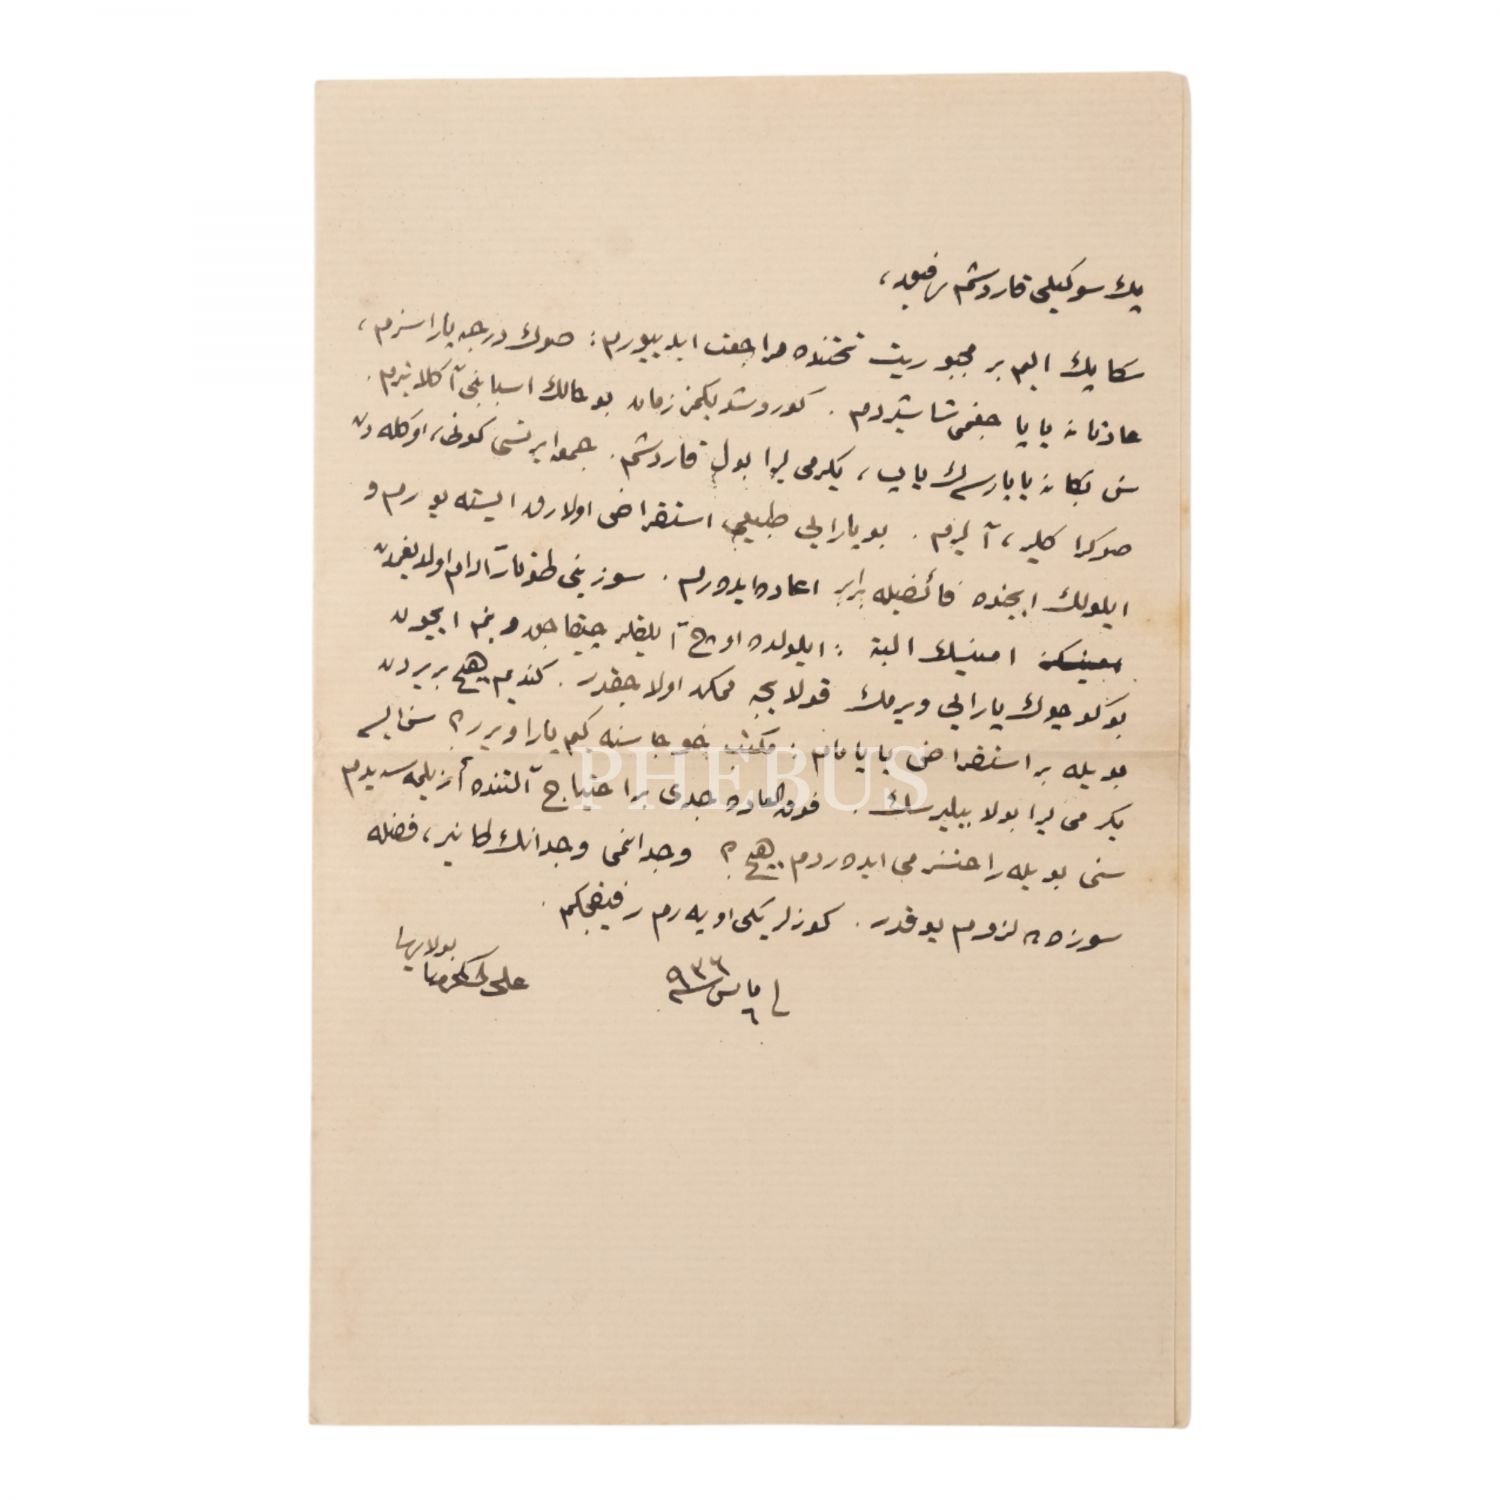 پك سوكيلى قاردشم رفيق،
سكا پك اليم بر مجبوريت تحتنده مراجعت ايدييورم: صوك درجه پاراسزم،
عادتا نه ياپا جغمى شاشيردم. كوروشديكمز زمان بو حالك اسبابنى آكلاتيرم.
سن بكا نه ياپارسه‌ك ياپ، يكرمى ليرا بول قاردشم. جمعه ايرتسى كونى، اوكله دن
صوكرا كلير، آليرم. بو پارايى طبيعى استقراض اولارق ايسته يورم و
ايلولك ايچنده فائضيله برابر اعاده ايده رم. سوزينى طوتار آدام اولديغمدن
امينسك البته: ايلولده اوچ آيلقلر چيقاجق و بنم ايچون
بو كوچوك پارايى ويرمك قولايجه ممكن اولاجقدر. كنديم هيچ بر يردن
بويله بر استقراض ياپامام: مكتب خوجاسنه كيم پارا ويرر؟ سن ايسه
يكرمى ليرا بولابيليرسك. فوق العاده جدى بر احتياج آلتنده ازيلمه سه يدم
سنى بويله راحتسز مى ايده ردم هيچ؟ وجدانمى وجدانك طانير، فضله
سوزه لزوم يوقدر. كوزلريكى اوپه رم رفيقجكم.
بولايرلى
على اكرم
٦ مايس ٩٣٣
PHEBUS